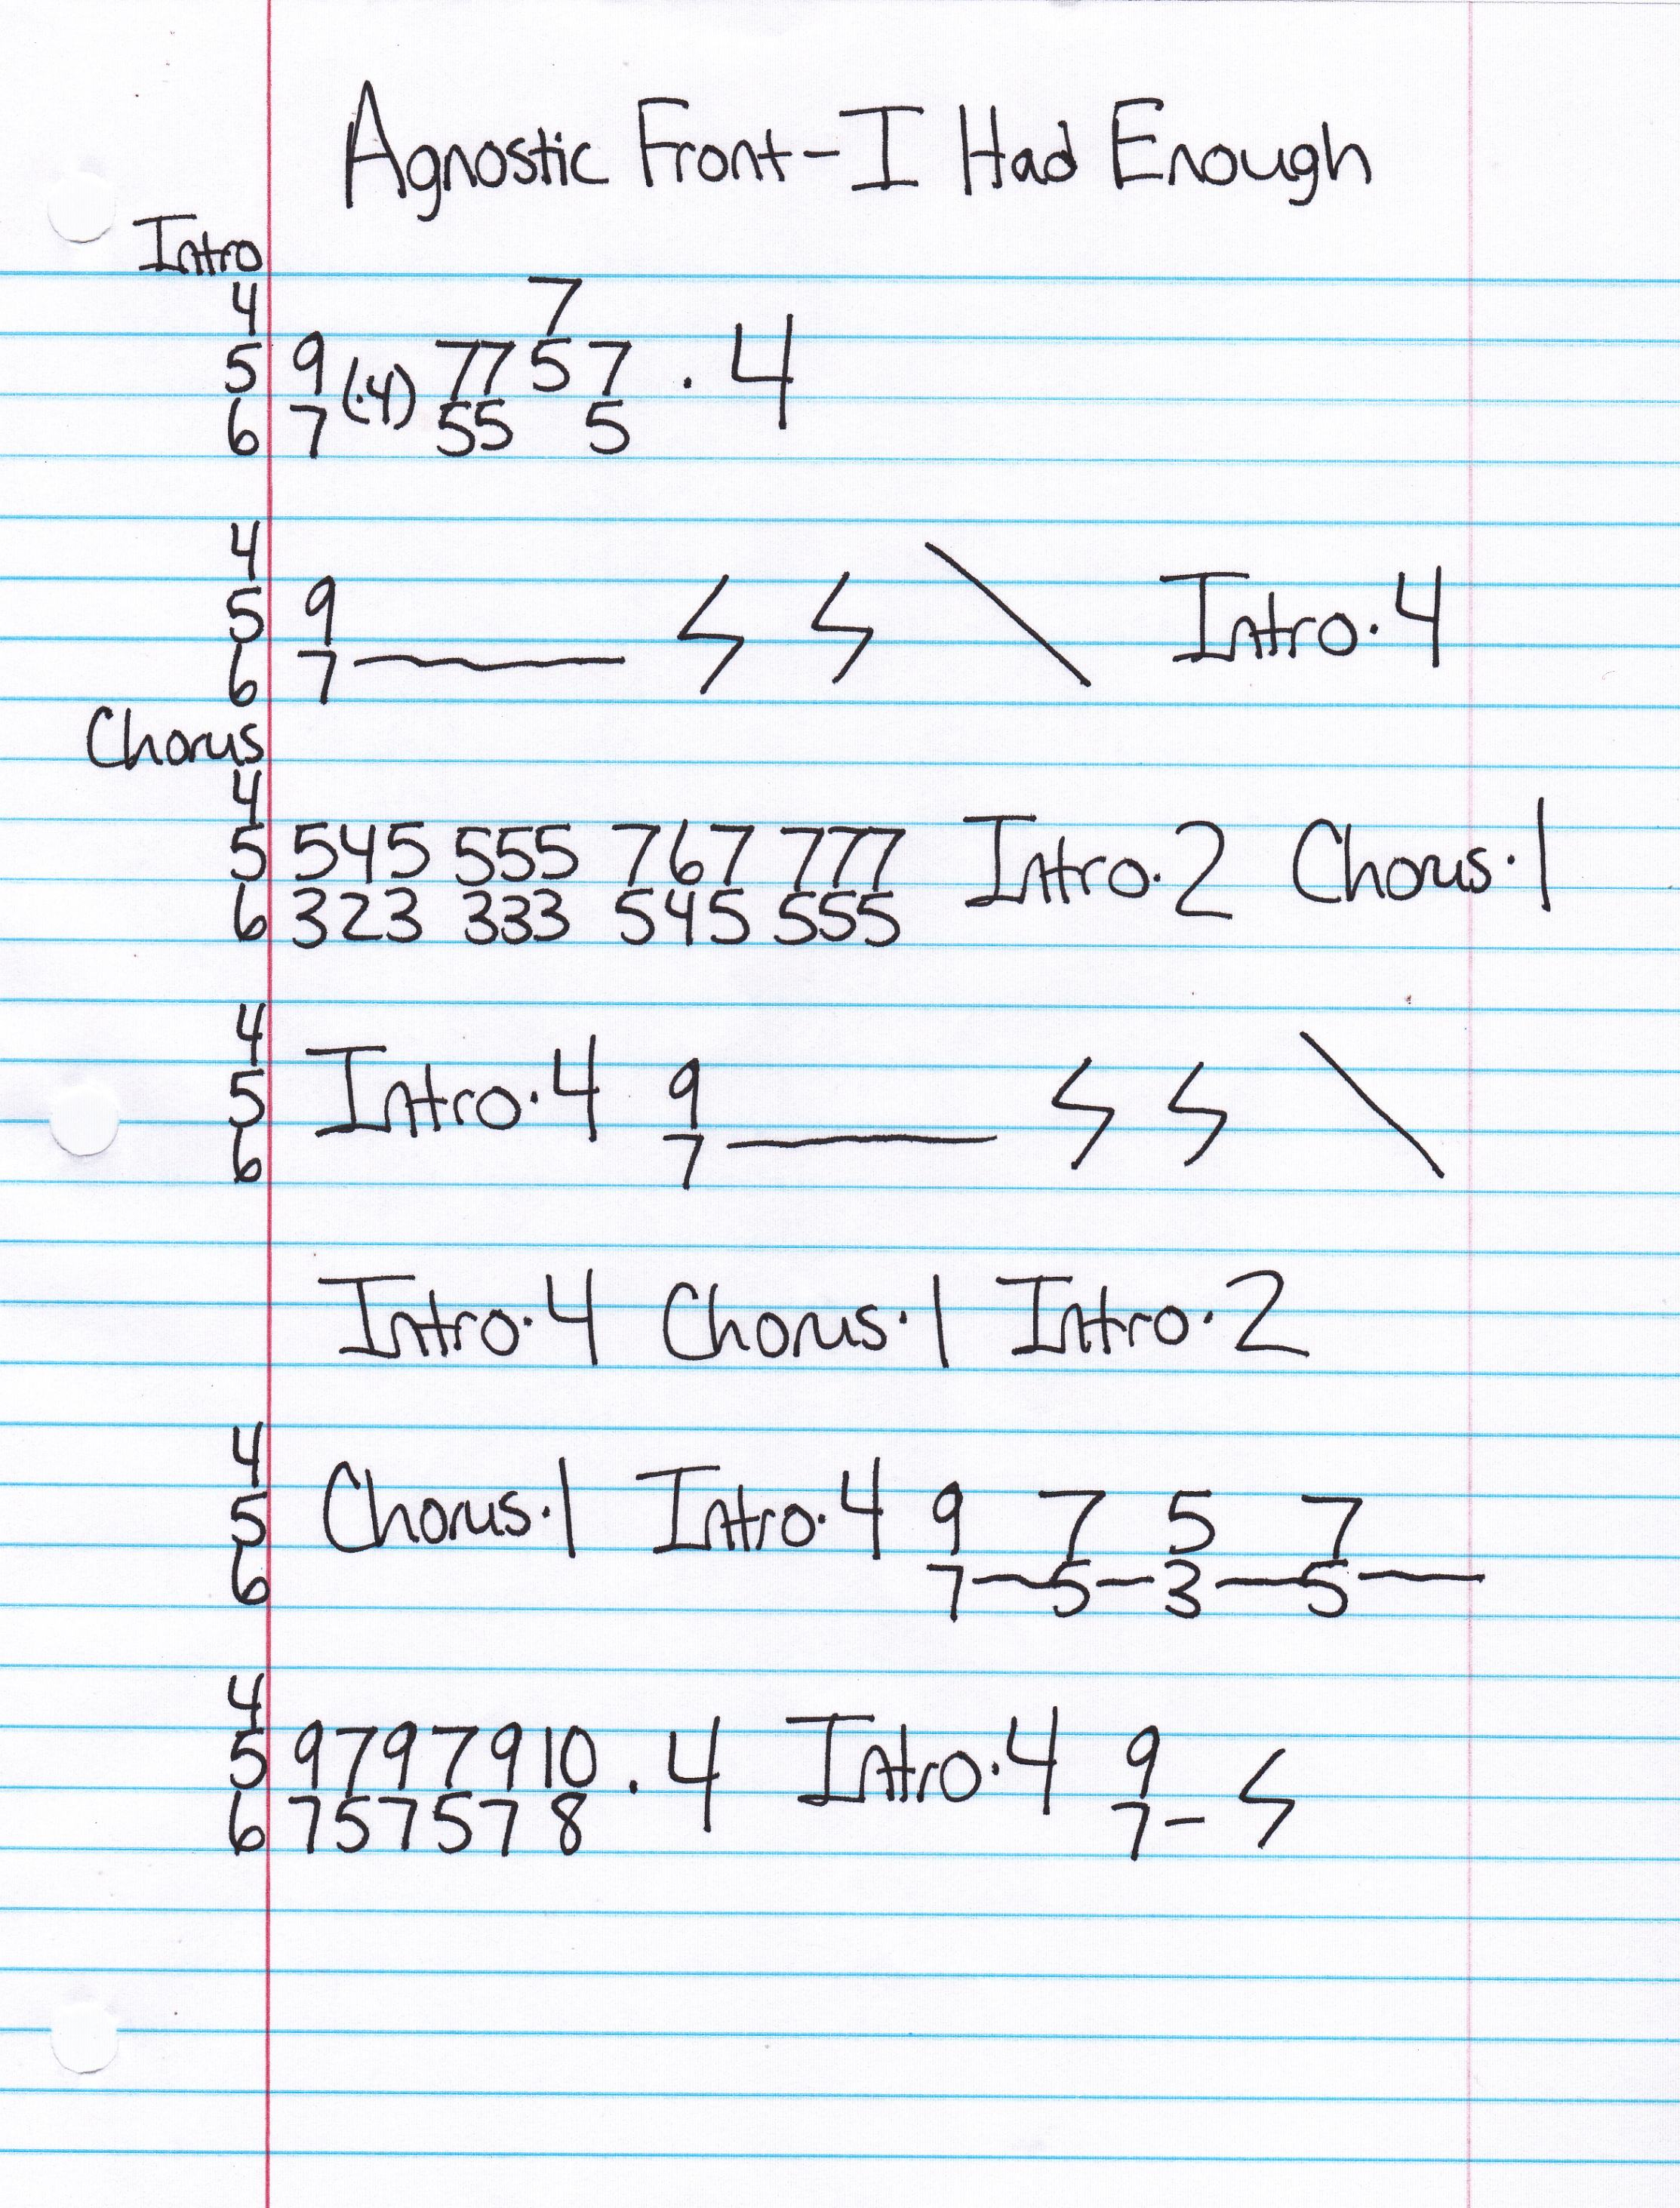 Agnostic Front-I Had Enough
Intro
4 7
5 9 (.4) 77 5 7 . 4
6 7 55 5
4
5 9 Intro.4
6 7
Chorus
4
5 545 555 767 777 Intro.2 Chorus.1
6 323 333 545 555
4
5 Intro.4 9
6 7
Intro.4 Chorus.1 Intro.2
4
5 Chorus.1 Intro.4 9 7 5 7
6 7 — 5 — 3 — 5 —
4
5 9 7 9 7 9 10 . 4 Intro.4 9
6 7 5 7 5 7 8 7 -